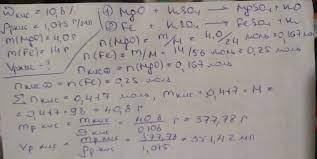 ωкис = 10,8%
ρкис = 1,075 г/мл
m(MgO) = 4,0 г
m(Fe) = 14 г
Vркис - ?
1) MgO + H2SO4 → MgSO4 + H2O
2) Fe + H2SO4 → FeSO4 + H2
n(MgO) = m/M = 4,0/24 моль = 0,167 моль
n(Fe) = m/M = 14/56 моль = 0,25 моль
nкис① = n(MgO) = 0,167 моль
nкис② = n(Fe) = 0,25 моль
Σnкис = 0,417 моль, mкис = 0,417 · M =
= 0,417 · 98 = 40,8 г
mр.кис = mкис/ωкис = 40,8/0,108 г = 377,78 г
Vр.кис = mр.кис/ρр.кис = 377,78/1,075 = 351,42 мл